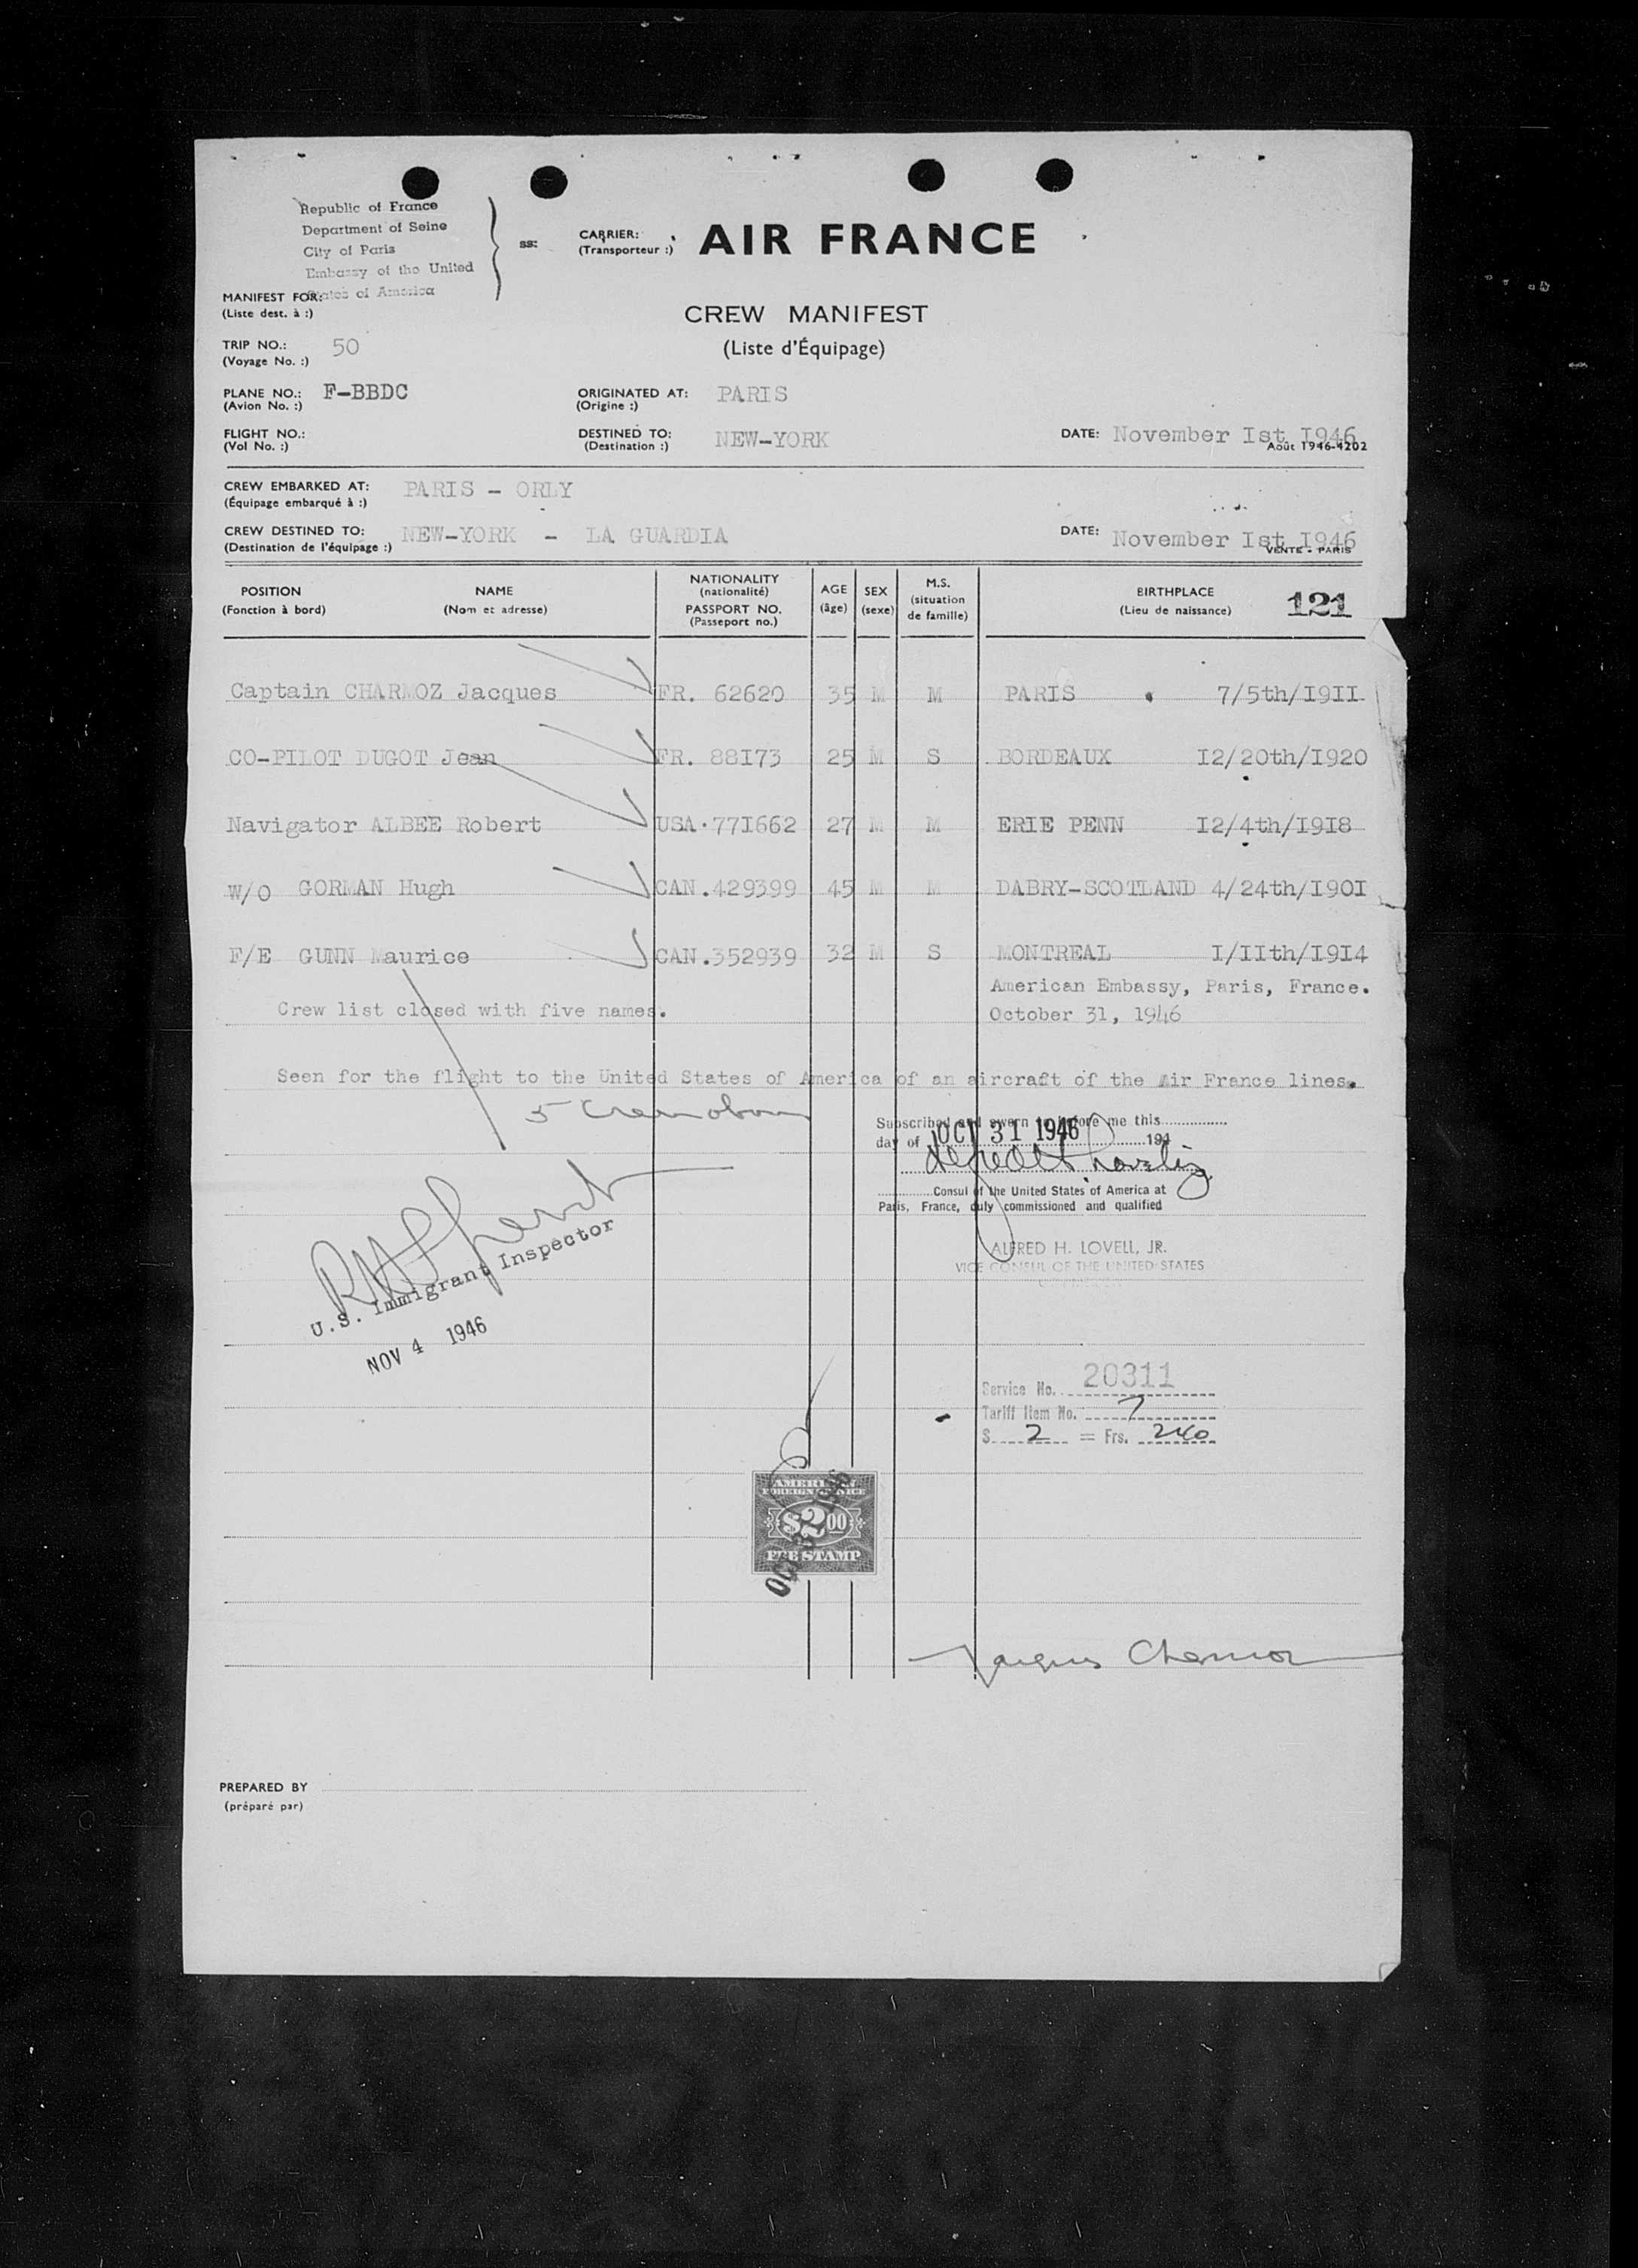 Republic of France
Department of Seine
City of Paris
Embassy of the United
States of America
ss:
CARRIER: AIR FRANCE
(Transporteur :)
MANIFEST FOR:
(Liste dest. à :)
CREW MANIFEST
(Liste d'Équipage)
TRIP NO.: 50
(Voyage No. :)
PLANE NO.: F-BBDC ORIGINATED AT: PARIS
(Avion No. :) (Origine :)
FLIGHT NO.: DESTINED TO: NEW-YORK DATE: November Ist I946
(Vol No. :) (Destination :) Août 1946-4202
CREW EMBARKED AT: PARIS - ORLY
(Équipage embarqué à :)
CREW DESTINED TO: NEW-YORK - LA GUARDIA DATE: November Ist I946
(Destination de l'équipage :) VENTE - PARIS
POSITION NAME NATIONALITY AGE SEX M.S. BIRTHPLACE 121
(Fonction à bord) (Nom et adresse) (nationalité) (âge) (sexe) (situation de famille) (Lieu de naissance)
PASSPORT NO.
(Passeport no.)
Captain CHARMOZ Jacques FR. 62620 35 M M PARIS 7/5th/I9II
CO-PILOT DUGOT Jean FR. 88I73 25 M S BORDEAUX I2/20th/I920
Navigator ALBEE Robert USA.77I662 27 M M ERIE PENN I2/4th/I9I8
W/O GORMAN Hugh CAN.429399 45 M M DABRY-SCOTLAND 4/24th/I90I
F/E GUNN Maurice CAN.352939 32 M S MONTREAL I/IIth/I9I4
American Embassy, Paris, France.
Crew list closed with five names. October 31, 1946
Seen for the flight to the United States of America of an aircraft of the Air France lines.
5 Crew
Subscribed and sworn to before me this
day of OCT 31 1946 194
Consul of the United States of America at
Paris, France, duly commissioned and qualified
ALFRED H. LOVELL, JR.
VICE CONSUL OF THE UNITED STATES
U.S. Immigrant Inspector
NOV 4 1946
Service No. 20311
Tariff Item No. 7
$ 2 = Frs. 240
AMERICAN
FOREIGN SERVICE
$2.00
FEE STAMP
Jacques Charmoz
PREPARED BY
(préparé par)